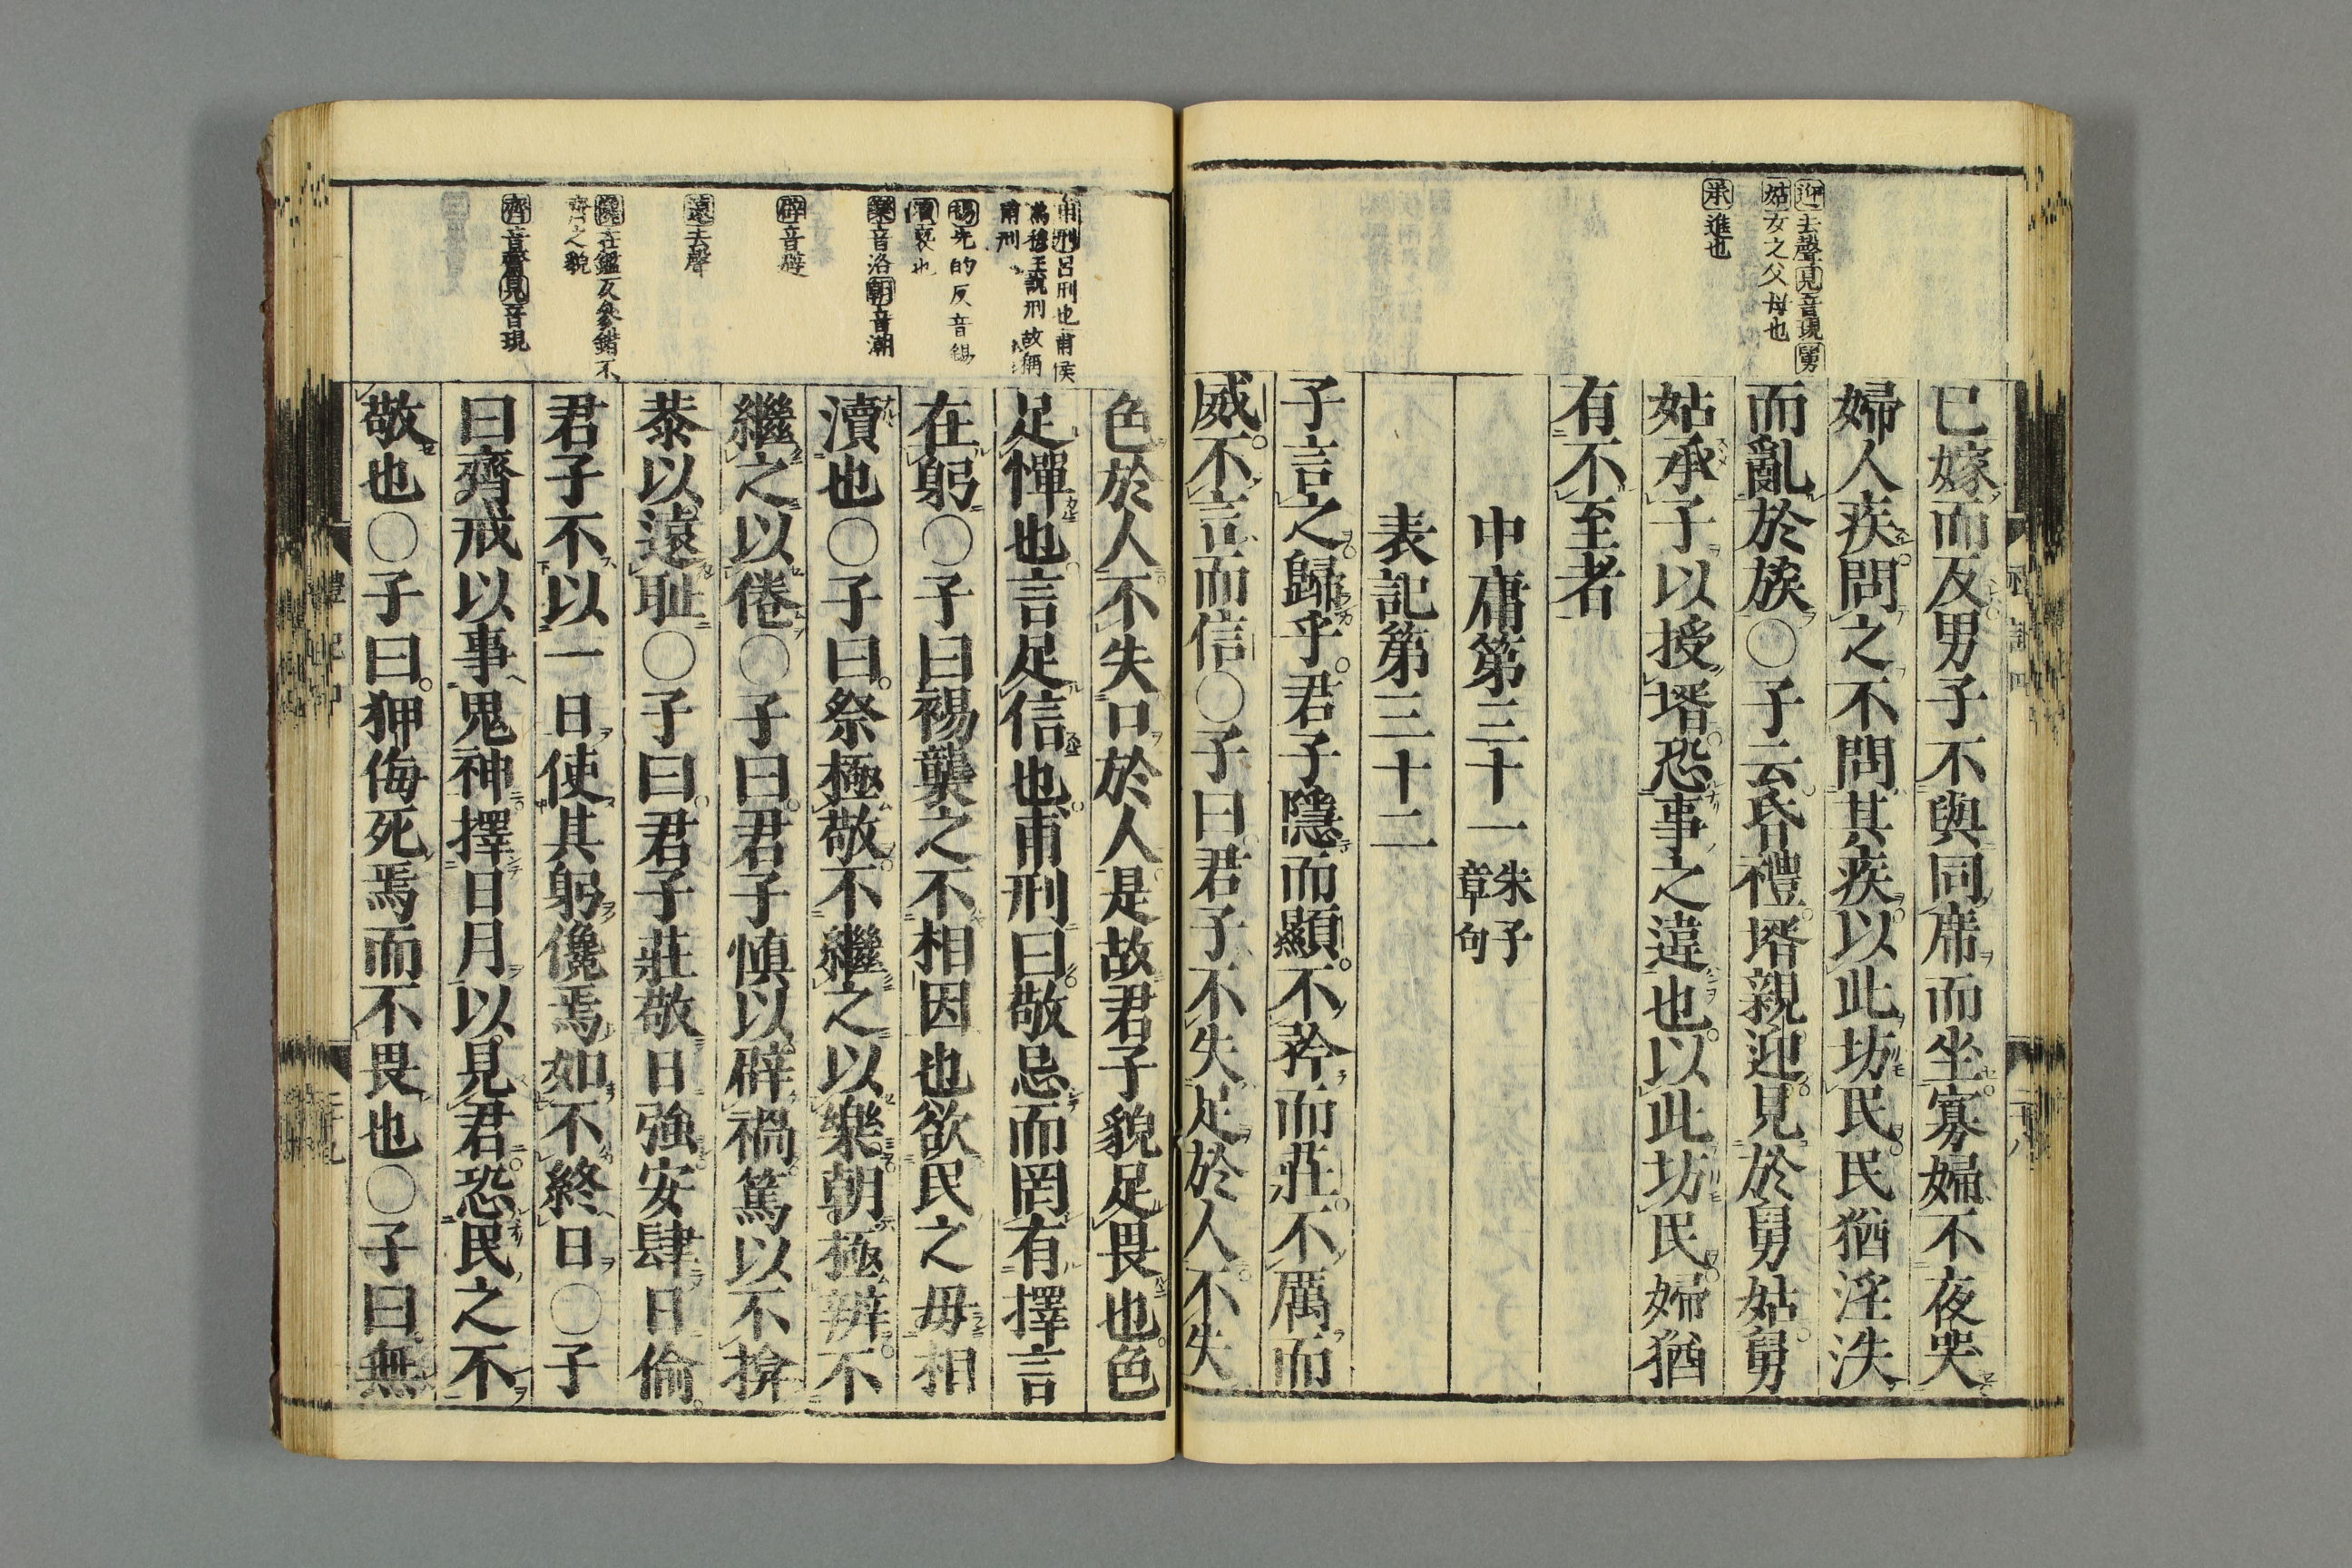 迎去聲見音現舅
姑女之父母也
承進也
已嫁而反男子不與同席而坐寡婦不夜哭
婦人疾問之不問其疾以此坊民民猶淫泆
而亂於族○子云昏禮壻親迎見於舅姑舅
姑承子以授壻恐事之違也以此坊民婦猶
有不至者
中庸第三十一朱子章句
表記第三十二
子言之歸乎君子隱而顯不矜而莊不厲而
威不言而信○子曰君子不失足於人不失
甫刑呂刑也甫侯
為穆王說刑故稱
甫刑
裼先的反音錫
瀆褻也
樂音洛朝音潮
辟音避
遠去聲
儳在鑑反參錯不
齊之貌
齊音齋見音現
色於人不失口於人是故君子貌足畏也色
足憚也言足信也甫刑曰敬忌而罔有擇言
在躬○子曰裼襲之不相因也欲民之毋相
瀆也○子曰祭極敬不繼之以樂朝極辨不
繼之以倦○子曰君子慎以辟禍篤以不揜
恭以遠耻○子曰君子莊敬日強安肆日偷
君子不以一日使其躬儳焉如不終日○子
曰齊戒以事鬼神擇日月以見君恐民之不
敬也○子曰狎侮死焉而不畏也○子曰無